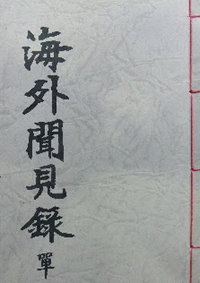 海外聞見録
單